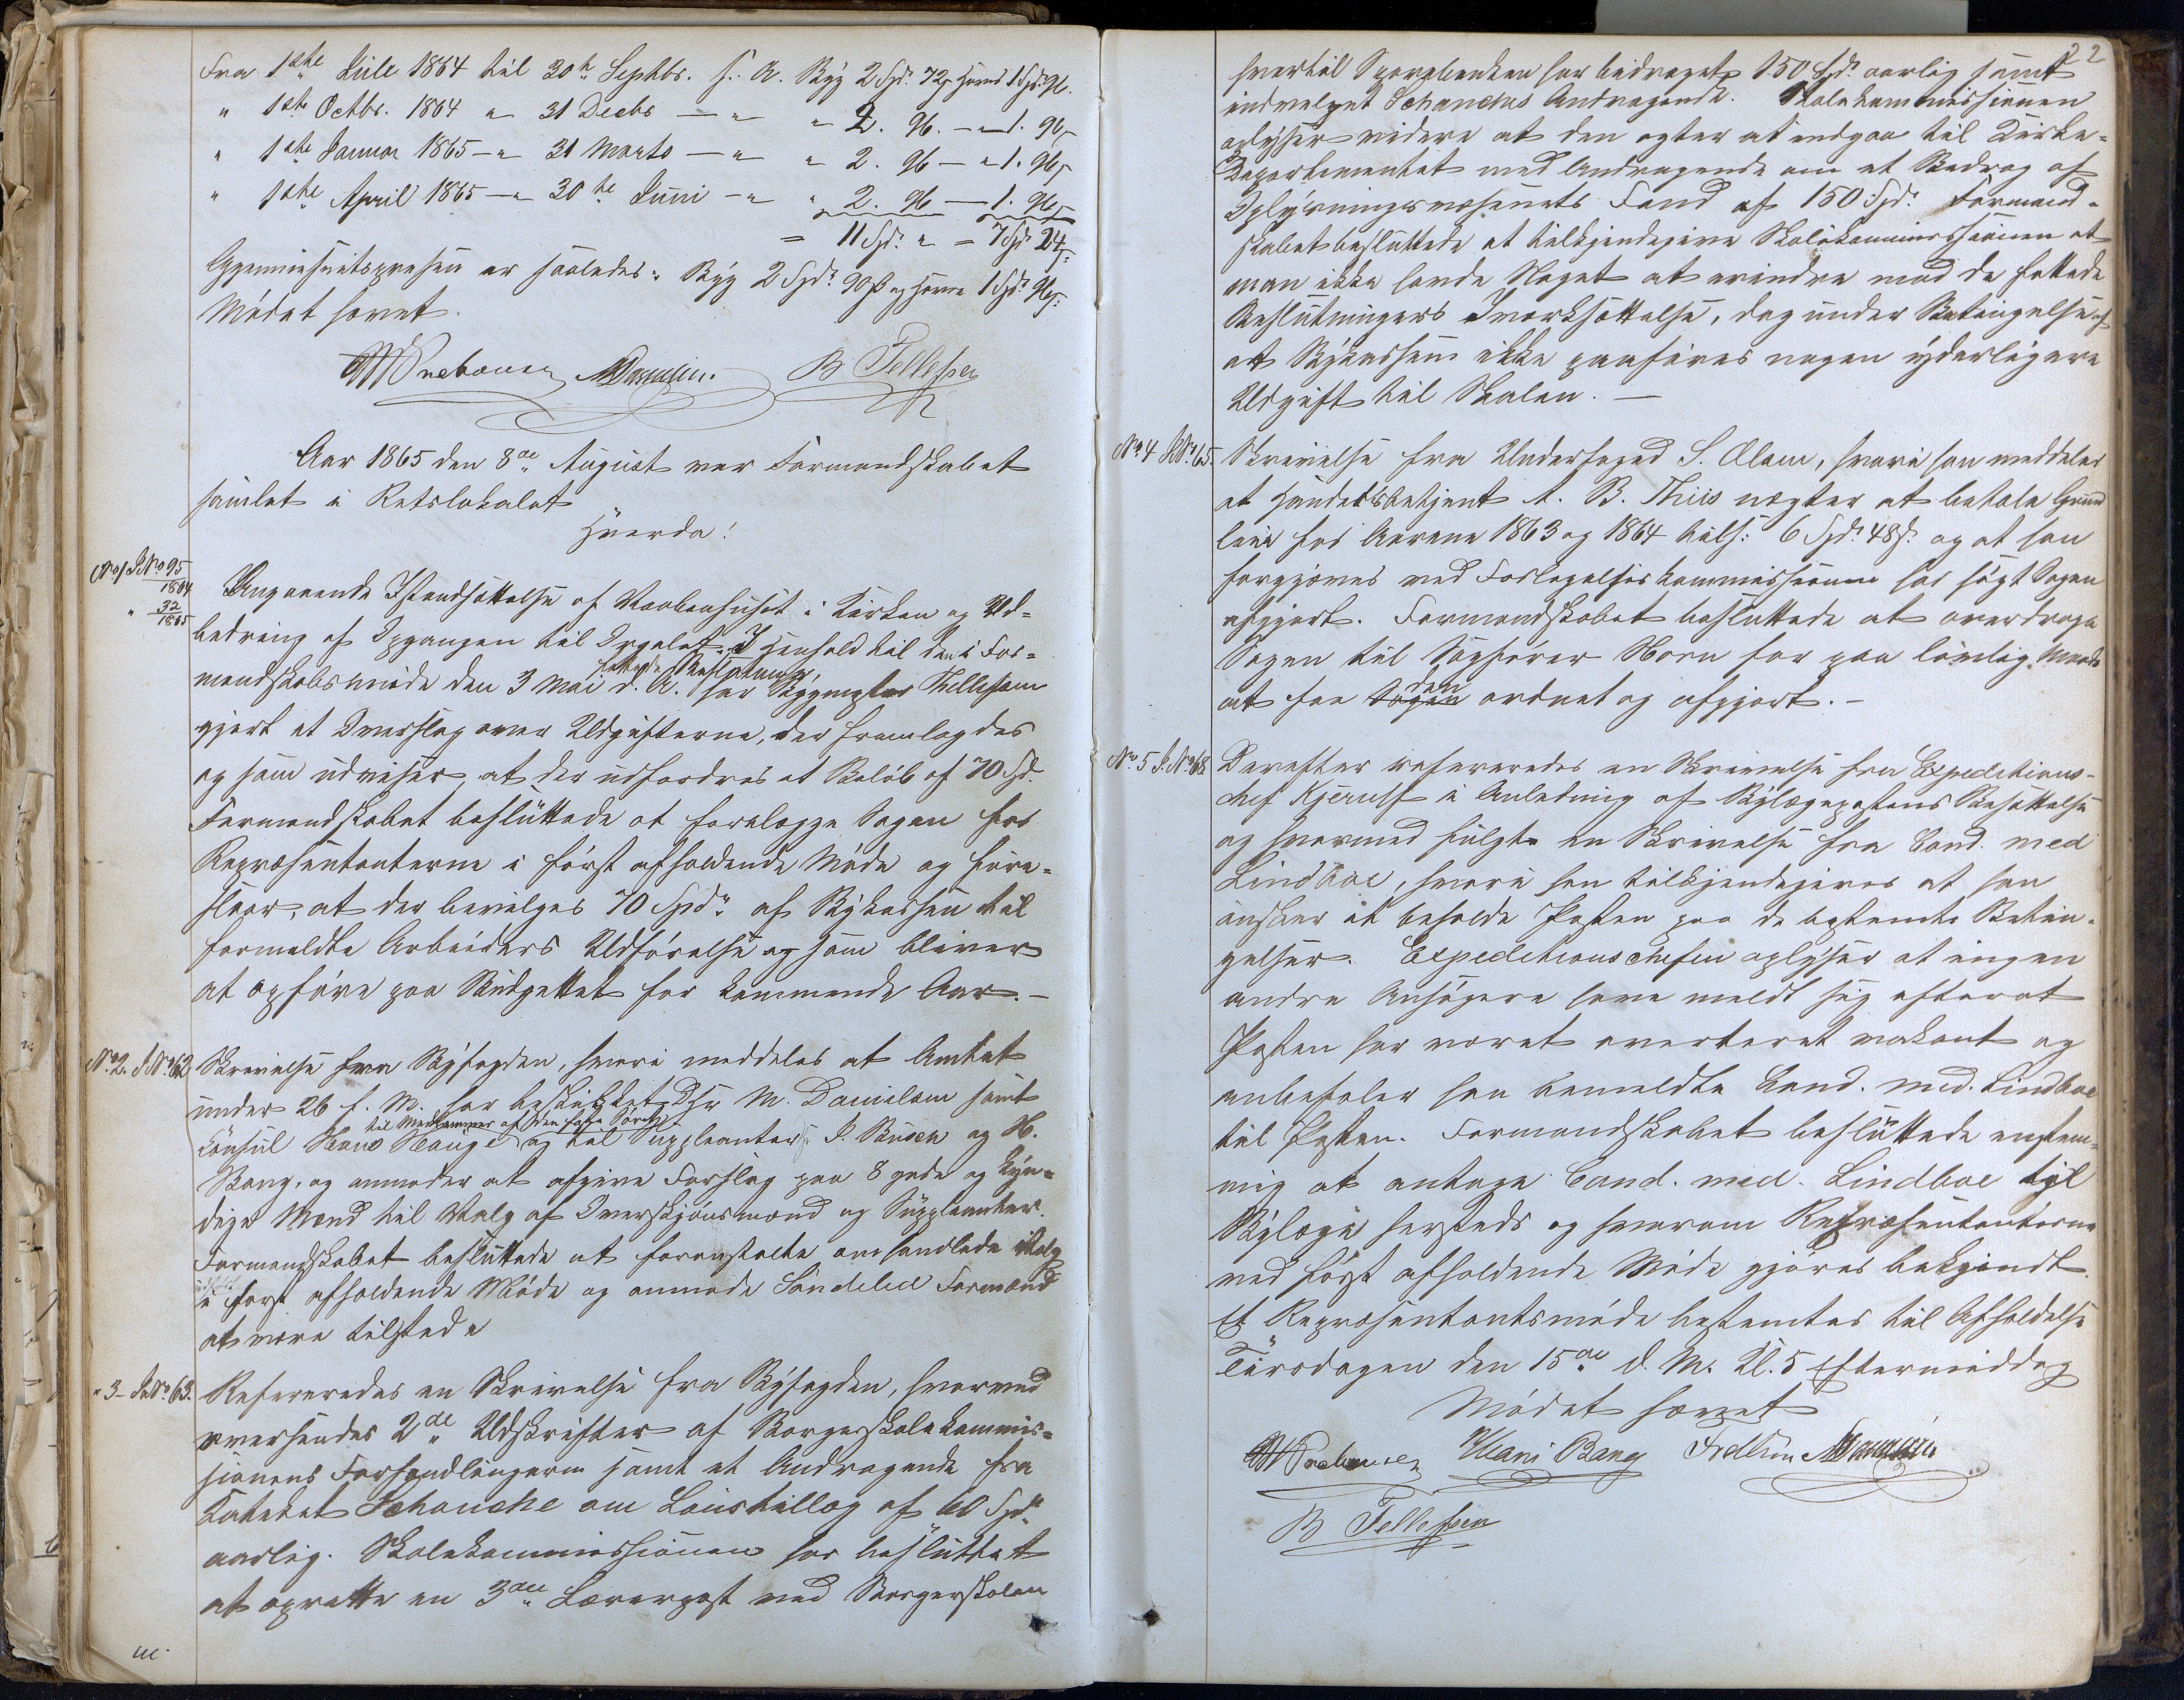 Fra 1ste Juli 1864 til 30te Septbr. s. A. Byg 2 Spd. 72 s Havre 1 Spd. 96.
" 1ste Octbr. 1864 " 31 Decbr — " " 2. 96. — " 1. 96 s
" 1ste Januar 1865 — " 31 Marts — " " 2. 96 — " 1. 96 s
" 1ste April 1865 — " 30te Juni — " " 2. 96 — 1. 96 s
= 11 Spd. " = 7 Spd 24 s
Gjennemsnitsprisen er saaledes: Byg 2 Spd. 90 s og Havre 1 Spd. 96 s.
Mødet hævet.
B Tellefsen
Aar 1865 den 8de August var Formandskabet
samlet i Retslokalet
Hvorda!
No 1 J No 95
1864
" 32
1865
Angaaende Istandsættelse af Vaabenhuset i Kirken og Ud-
bedring af Opgangen til Orgelet. I Henhold til den i For-
mandskabsmøde den 3 Mai d. A. fattede Beslutning, har Bygmester Tellefsen
gjort et Overslag over Udgifterne, der fremlagdes
og som udviser, at der udfordres et Beløb af 70 Spd.
Formandskabet besluttede at forelægge Sagen for
Repræsentanterne i først afholdende Møde og fore-
slaar, at der bevilges 70 Spd. af Bykassen til
formeldte Arbeiders Udførelse og som bliver
at opføre paa Budgettet for kommende Aar. —
No. 2. J No. 62
Skrivelse fra Byfogden, hvori meddeles at Amtet
under 26 f. M. har beskikket Dhr M. Danielsen samt
til Medlemmer af den faste
Consul Hans Hauge og til Suppleanter: J. Busch og H.
Bang, og anmoder at afgive Forslag paa 8 gode og kyn-
dige Mænd til Valg af Overskjønsmænd og Suppleanter.
Formandskabet besluttede at foranstalte omhandlede Valg
i først afholdende Møde og anmode Søndeled Formænd
at være tilstede
" 3 — J. No. 63.
Refereredes en Skrivelse fra Byfogden, hvormed
oversendes 2de Udskrifter af Borgerskolekommis-
sionens Forhandlinger samt et Andragende fra
Kateket Schanche om Lønstillæg af 60 Spd.
aarlig. Skolekommissionen har besluttet
at oprette en 3die Lærerpost ved Borgerskolen
22
hvortil Sparebanken har bidraget 150 Spd. aarlig samt
indvilget Schanches Andragende. Skolekommissionen
oplyser videre at den agter at indgaa til Kirke-
Departementet med Andragende om et Bidrag af
Oplysningsvæsenets Fond af 150 Spd. Formand-
skabet besluttede at tilkjendegive Skolekommissionen at
man ikke havde Noget at erindre mod de fattede
Beslutningers Iværksættelse, dog under Betingelse af
at Bykassen ikke paaføres nogen yderligere
Udgift til Skolen. —
No 4 J No. 65.
Skrivelse fra Underfoged S. Olsen, hvori han meddeler
at Handelsbetjent A. B. Thiis nægter at betale Grund
leie for Aarene 1863 og 1864 tils: 6 Spd. 48 s. og at han
forgjæves ved Forligelseskommissionen har søgt Sagen
afgjort. Formandskabet besluttede at overdrage
Sagen til Sagfører Horn for paa lovlig Maade
at faa den ordnet og afgjort. —
No. 5 J. No 68
Derefter refereredes en Skrivelse fra Expeditions-
chef Kjerulf i Anledning af Bylægepostens Besættelse
og hvormed fulgte en Skrivelse fra Cand. med
Lindboe, hvori han tilkjendegiver at han
ønsker at beholde Posten paa de bestemte Betin-
gelser. Expeditionschefen oplyser at ingen
andre Ansøgere have meldt sig efterat
Posten har været averteret vakant og
anbefaler han bemeldte Cand. med. Lindboe
til Posten. Formandskabet besluttede enstem-
mig at antage Cand. med. Lindboe til
Bylæge hersteds og hvorom Repræsentanterne
ved først afholdende Møde gjøres bekjendt.
Et Repræsentantsmøde bestemtes til Afholdelse
Tirsdagen den 15de d. M. Kl. 5 Eftermiddag
Mødet hævet
Bang
B Tellefsen